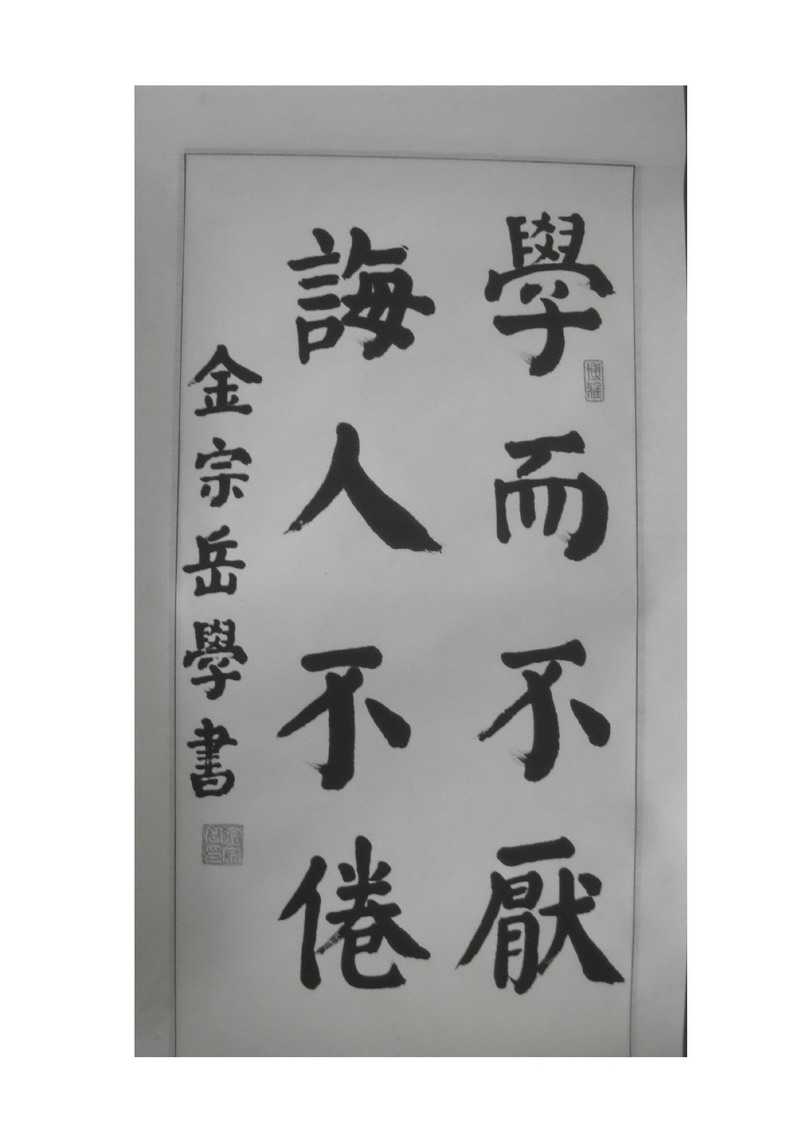 學而不厭
誨人不倦
金宗岳學書